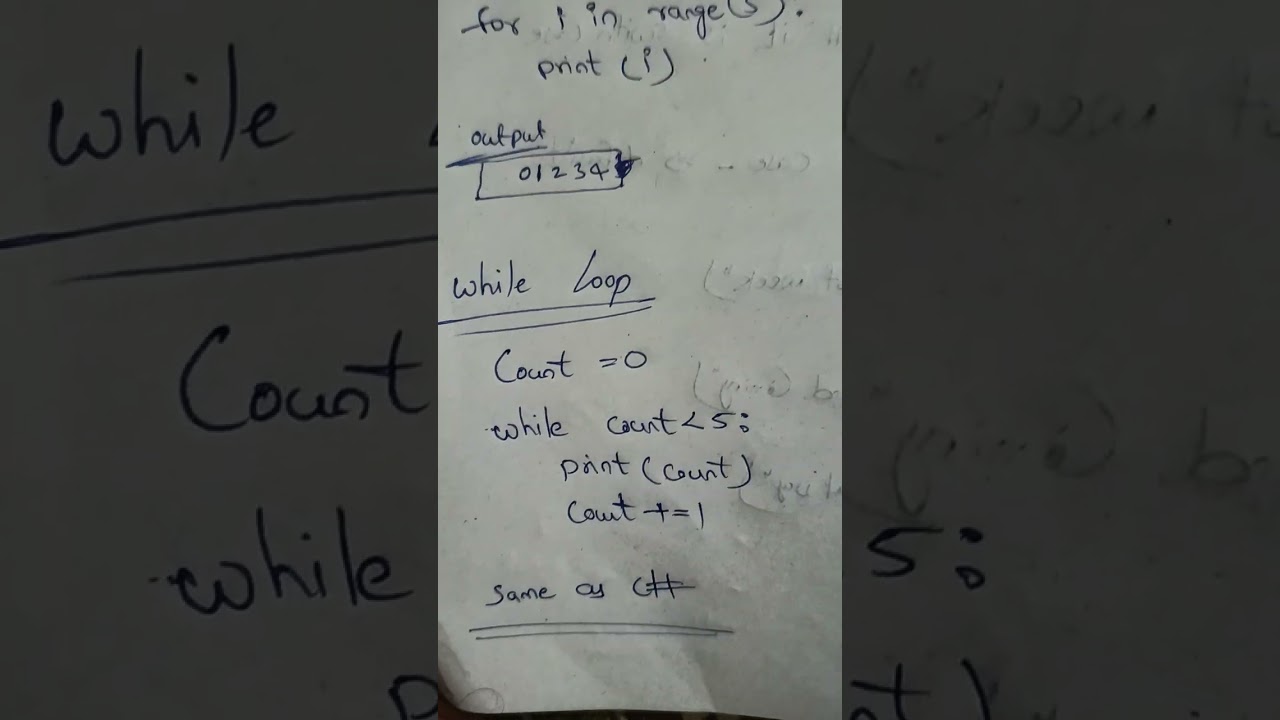 for i in range(5):
print (i)
output
01234
while Loop
Count =0
while count<5:
print (count)
Count +=1
Same as C#